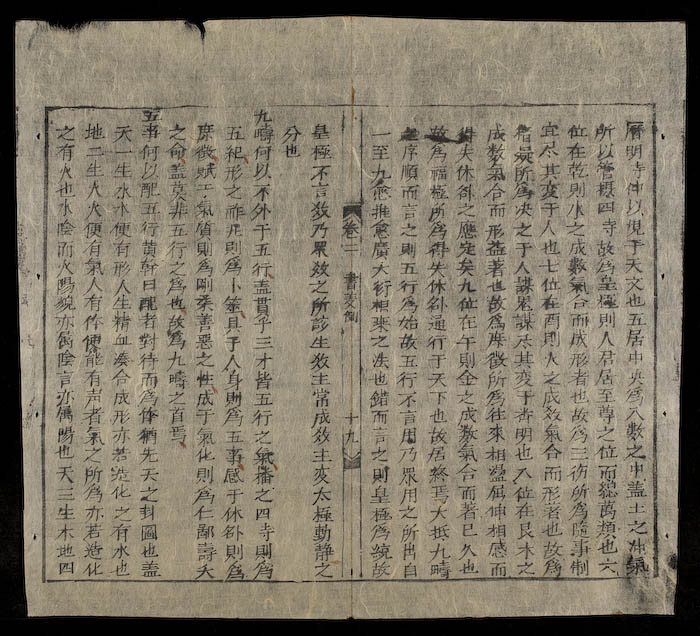 明寺伸以現于天文也五居中央為八數之中盖土之冲氣
所以管摄四寺故為皇極則人君居至尊之位而緫萬類也六
位在乾則水之成數氣合而成形者也故為三徳所為隨事制
宜尽其変于人也七位在酉則火之成数氣合而形著也故為
稽疑所為决之于人謀鬼謀尽其変于明也八位在艮木之
成数氣合而形益著也故為徴所為往來相盪屈伸相感而
得失休咎之應定矣九位在午則金之成数氣合而著已久也
故為福極所為得失休咎通行于天下也故居終焉大抵九疇
之序順而言之則五行為始故五行不言用乃衆用之所出自
一至九愈推愈廣大衍相乘之法也錯而言之則皇極為綂故
卷二 書変例 十九
皇極不言数乃眾数之所生数主當成数主変太極動静之
分也
九疇何以不外于五行盖貫乎三才皆五行之氣播之四寺則為
五紀形之祚兆則為卜筮具于人身則為五事感于休咎則為
庶徴賦于氣質則為剛柔善惡之性成于氣化則為仁鄙壽夭
之命盖莫非五行之為也故為九疇之首焉
五事何以配五行黄幹曰配者對待而為体猶先天之卦圖也盖
天一生水水便有形人生精血湊合成形亦若造化之有水也
地二生火火便有氣人有体便能有声者氣之所為亦若造化
之有火也水陰而火陽貌亦為陰言亦為陽也天三生木地四